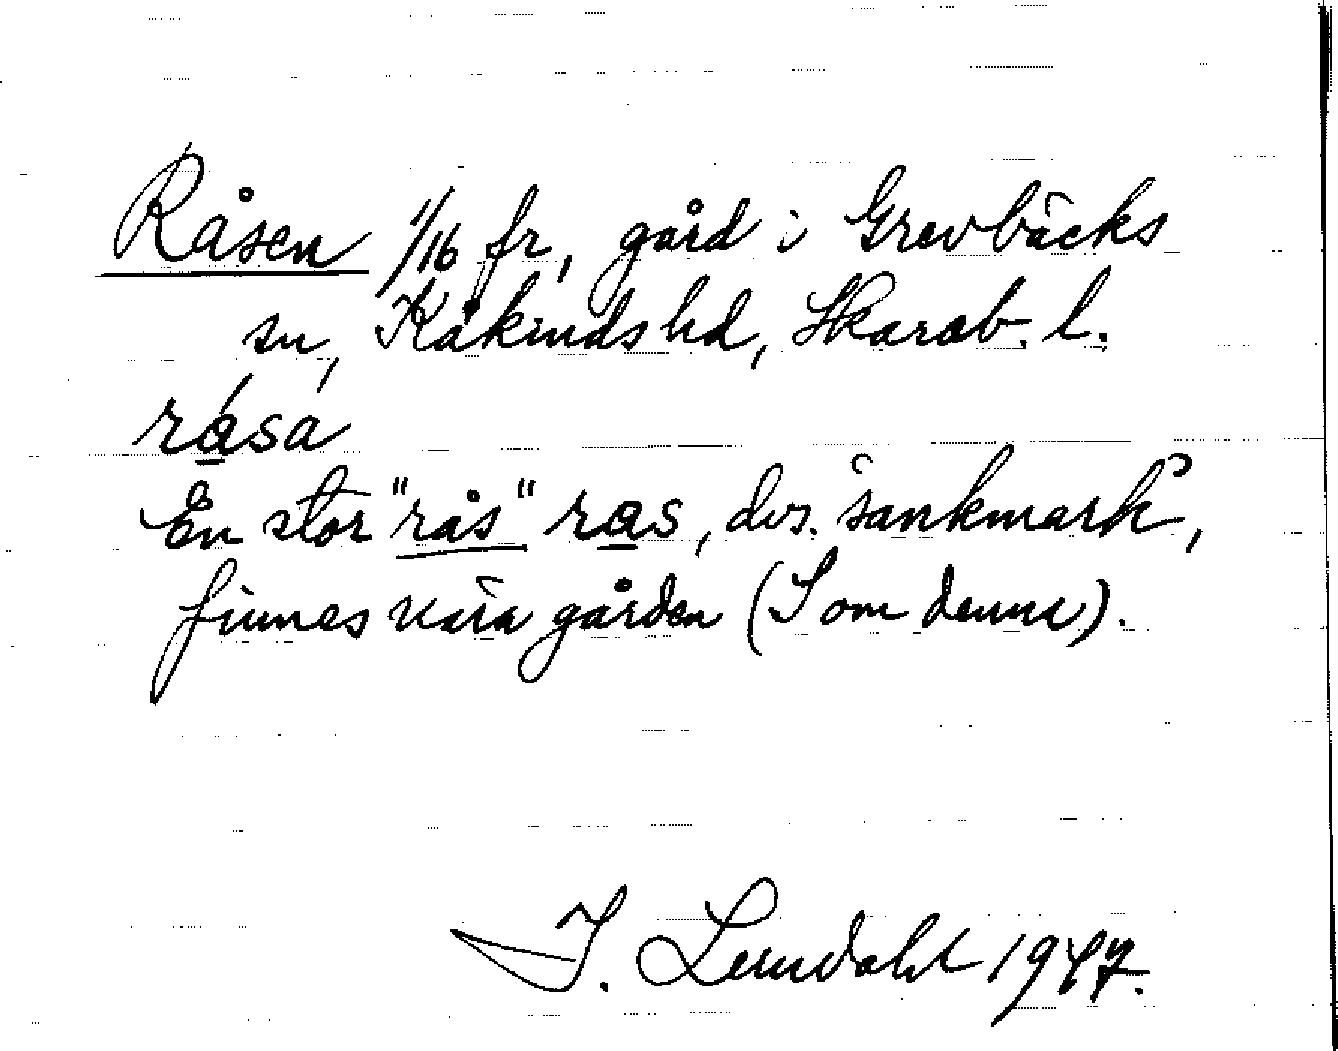 Råsen 1/16 fr, gård i Grevbäcks
sn, Kåkinds hd, Skarab. l.
råsa
En stor "rås" ras, dvs. 'sankmark',
finnes nära gården (I om denna).
I. Lundahl 1947.